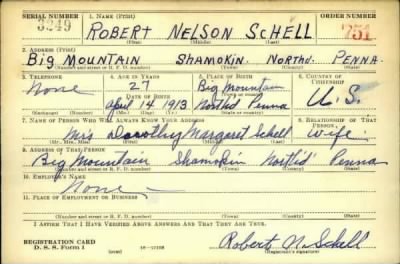 SERIAL NUMBER 1. NAME (Print) ORDER NUMBER
3249 ROBERT NELSON SCHELL 751
(First) (Middle) (Last)
2. ADDRESS (Print)
BIG MOUNTAIN SHAMOKIN. NORTHD. PENNA.
(Number and street or R. F. D. number) (Town) (County) (State)
3. TELEPHONE 4. AGE IN YEARS 5. PLACE OF BIRTH 6. COUNTRY OF CITIZENSHIP
None 27 Big Mountain
DATE OF BIRTH (Town or county)
April 14 1913 North'd Penna U.S.
(Exchange) (Number) (Mo.) (Day) (Yr.) (State or country)
7. NAME OF PERSON WHO WILL ALWAYS KNOW YOUR ADDRESS 8. RELATIONSHIP OF THAT PERSON
Mrs Dorothy Margaret Schell wife
(Mr., Mrs., Miss) (First) (Middle) (Last)
9. ADDRESS OF THAT PERSON
Big Mountain Shamokin North'd' Penna
(Number and street or R. F. D. number) (Town) (County) (State)
10. EMPLOYER'S NAME
None
11. PLACE OF EMPLOYMENT OR BUSINESS
(Number and street or R. F. D. number) (Town) (County) (State)
I AFFIRM THAT I HAVE VERIFIED ABOVE ANSWERS AND THAT THEY ARE TRUE.
REGISTRATION CARD
D. S. S. Form 1 Robert N. Schell
(Registrant's signature)